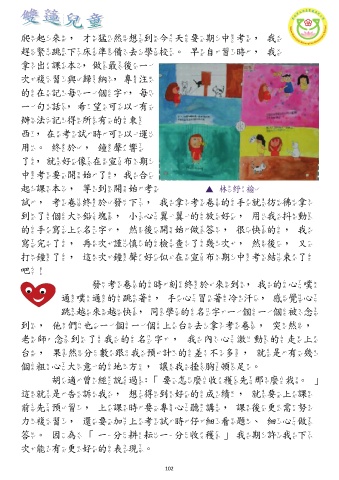 雙蓮兒童
爬起來，才猛然想到今天要期中考，我
趕緊跳下床準備去學校。早自習時，我
拿出課本，做最後一
次複習與歸納，專注
的在記每一個字，每
一句話，希望可以有
辦法記得所有的東
西，在考試時可以運
用。終於，鐘聲響
了，就好像在宣布期
中考要開始了，我合
起課本，單到開始考
▲ 林妤綸
試，考卷終於發下，我拿考卷的手就彷彿拿
到了個大鉛塊，小心翼翼的放好，用我抖動
的手寫上名字，然後開始做答，很快的，我
寫完了，再次謹慎的檢查了幾次，然後，又
打鐘了，這次鐘聲好似在宣布期中考結束了
吧！
發考卷的時刻終於來到，我的心噗
通噗通的跳著，手心冒著冷汗，感覺心
跳越來越快，同學的名字一個一個被念
到，他們也一個一個上台去拿考卷，突然，
老師念到了我的名字，我內心激動的走上
台，果然分數跟我預計的差不多，就是有幾
個粗心大意的地方，讓我搥胸頓足。
胡適曾經說過：「要怎麼收穫先那麼栽。」
這就是告訴我，想得到好的成績，就要上課
前先預習，上課時要專心聽講，課後更需努
力複習，還要加上考試時仔細看題、細心做
答。因為「一分耕耘一分收穫」我期許我下
次能有更好的表現。
102